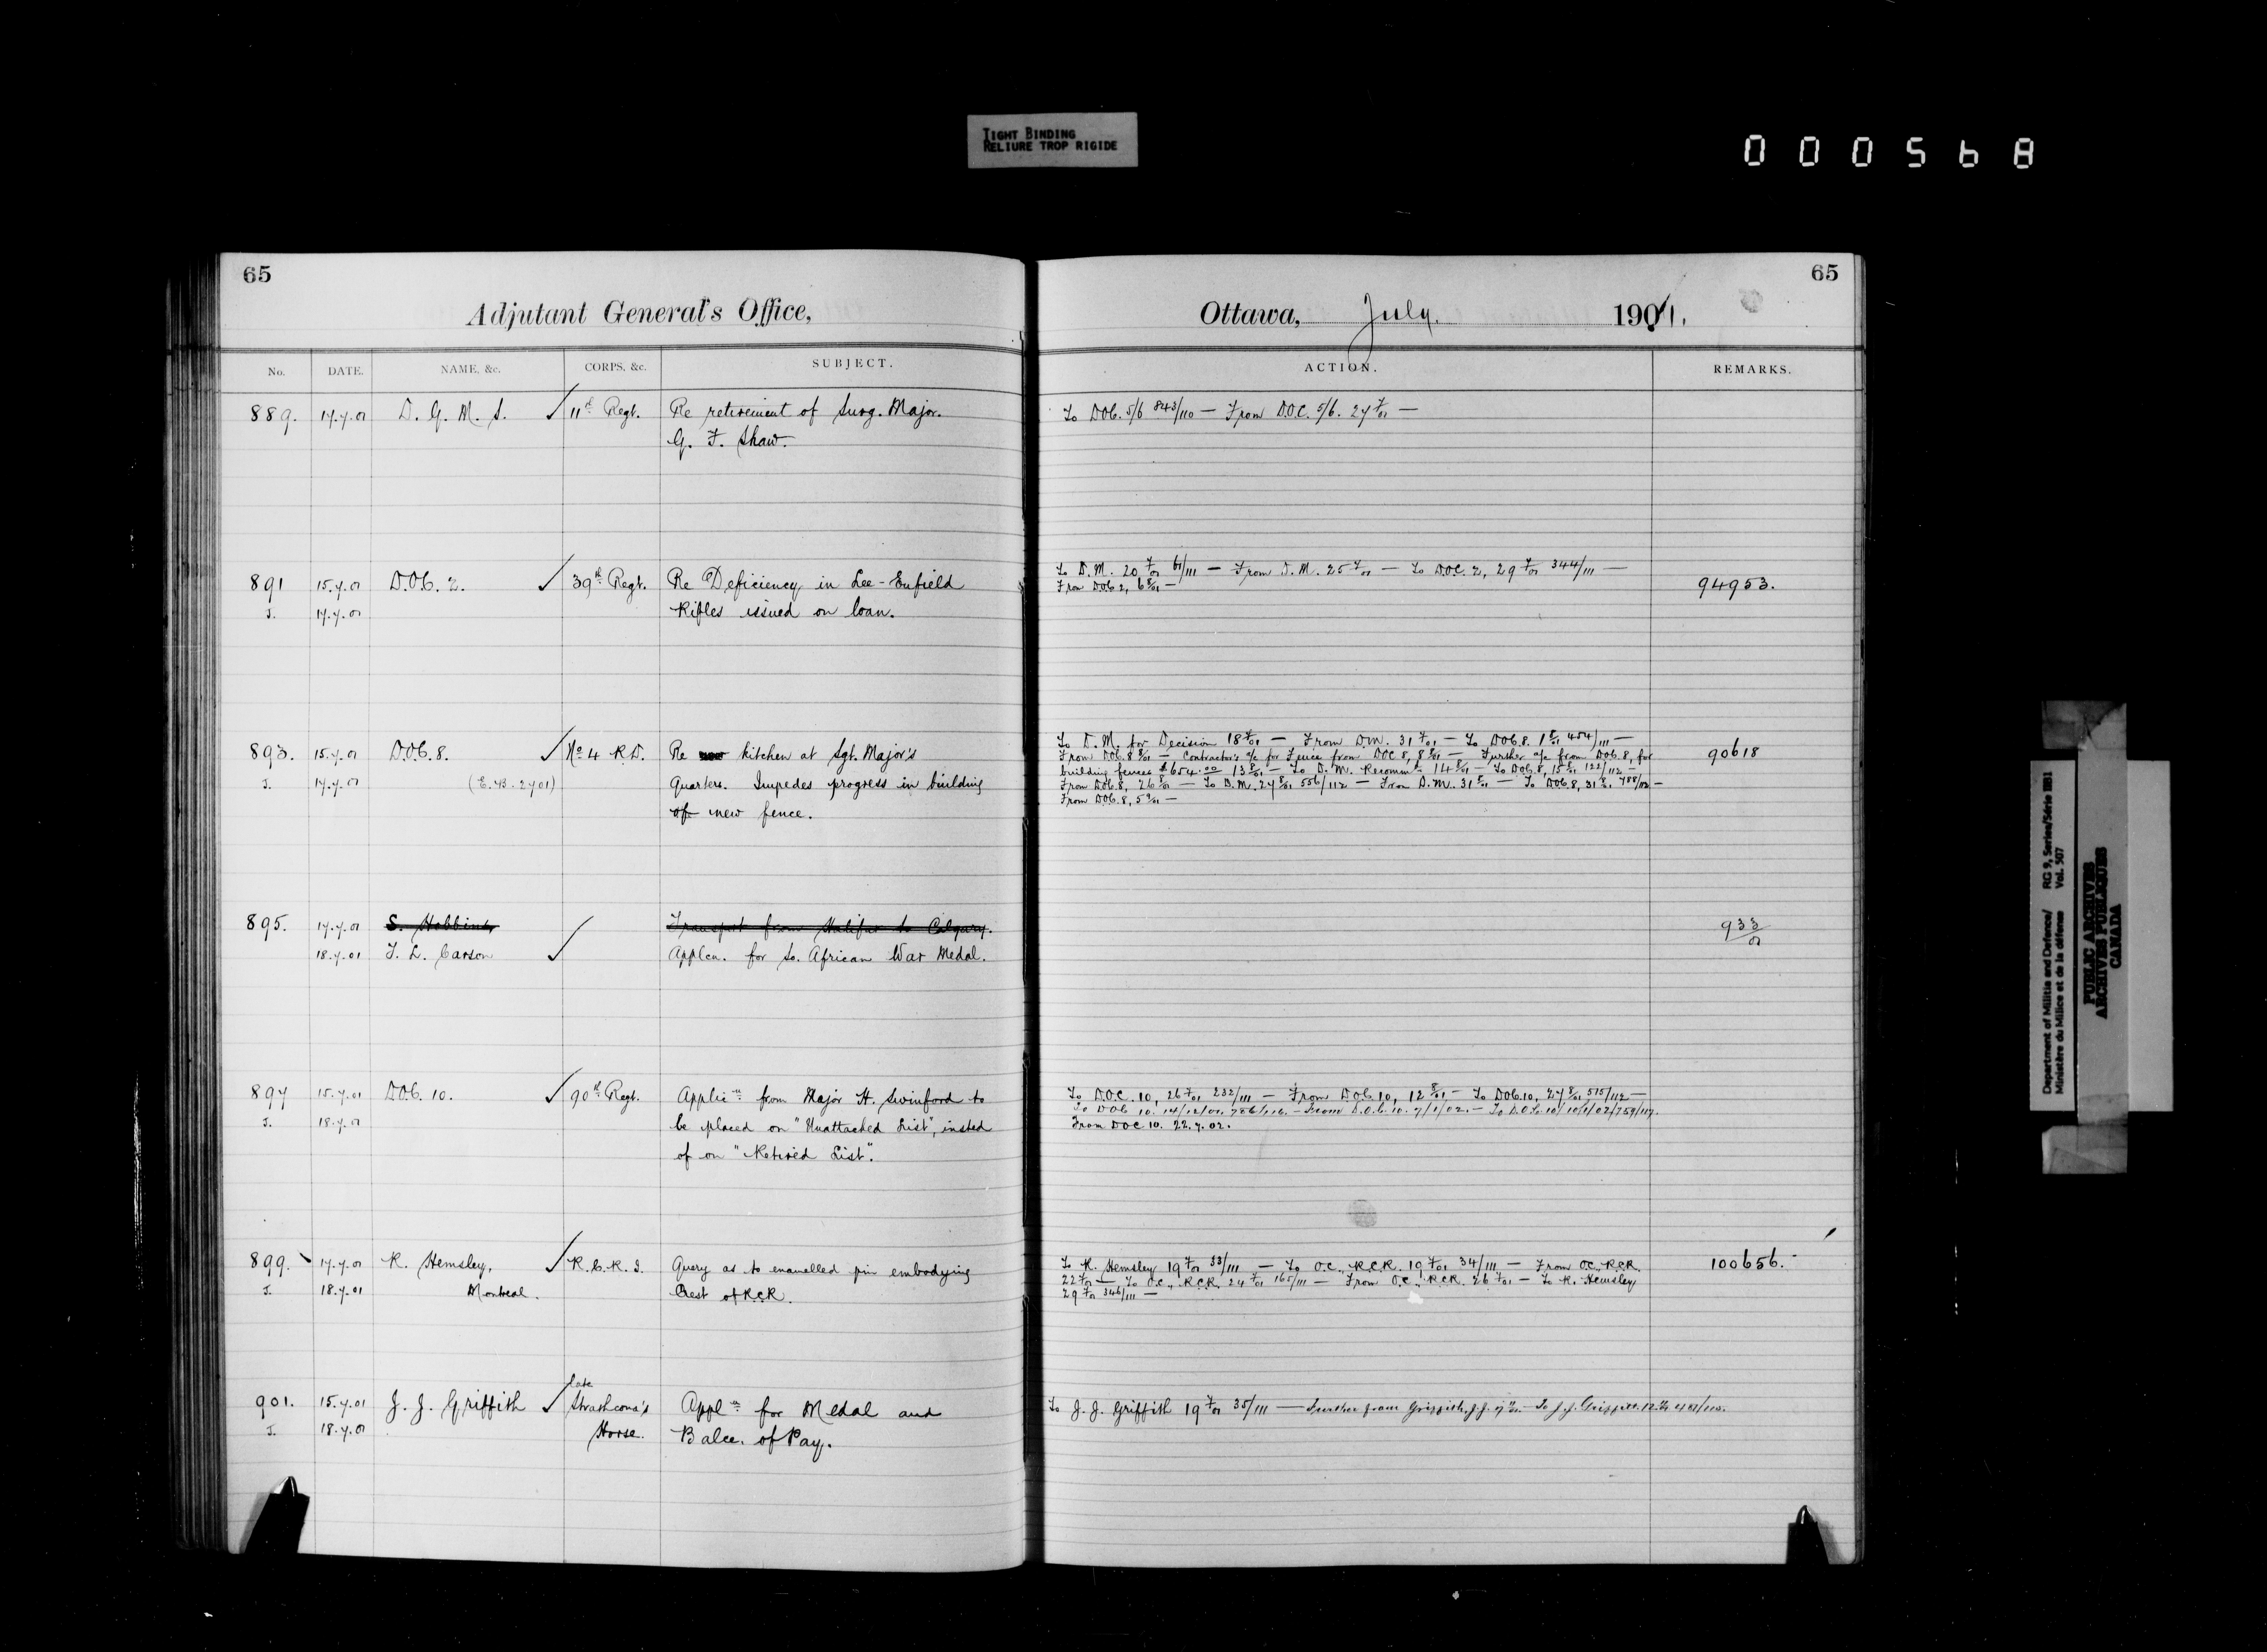 TIGHT BINDING
RELIURE TROP RIGIDE
000568
65
Adjutant General's Office,
No. DATE. NAME, &c. CORPS, &c. SUBJECT.
889. 17.7.01 D. G. M. S. ✓ 11th Regt. Re retirement of Surg. Major.
G. F. Shaw.
891 15.7.01 D.O.C. 2. ✓ 39th Regt. Re Deficiency in Lee-Enfield
J. 17.7.01 Rifles issued on loan.
893. 15.7.01 D.O.C. 8. ✓ No 4 R.D. Re kitchen at Sgt. Major's
J. 17.7.01 (E.B. 2701) Quarters. Impedes progress in building
of new fence.
895. 17.7.01 S. Hobbins Transport from Halifax to Calgary.
18.7.01 T. L. Carson ✓ Applcn. for So. African War Medal.
897 15.7.01 D.O.C. 10. ✓ 90th Regt. Applicn from Major H. Swinford to
J. 18.7.01 be placed on "Unattached List", insted
of on "Retired List".
899. 17.7.01 R. Hemsley, ✓ R.C.R.I. Query as to enamelled pin embodying
J. 18.7.01 Montreal. Crest of R.C.R.
late
901. 15.7.01 J. J. Griffith ✓ Strathcona's Appln for Medal and
J. 18.7.01 Horse. Balce. of Pay.
65
Ottawa, July. 1901.
ACTION. REMARKS.
To D.O.C. 5/6 843/110 — From D.O.C. 5/6. 27 7/01 —
To D.M. 20 7/01 61/111 — From D.M. 25 7/01 — To D.O.C. 2, 29 7/01 344/111 —
From D.O.C. 2, 6 8/01 — 94953.
To D.M. for Decision 18 7/01 — From D.M. 31 7/01 — To D.O.C. 8. 1 8/01 454/111 —
From D.O.C. 8 8/01 — Contractor's a/c for Fence from D.O.C. 8, 8 8/01 — Further a/c from D.O.C. 8, for 90618
building fences $654.00 13 8/01 — To D.M. Recommd 14 8/01 — To D.O.C. 8, 15 8/01 122/112 —
From D.O.C. 8, 26 8/01 — To D.M. 27 8/01 556/112 — From D.M. 31 8/01 — To D.O.C. 8, 31 8/01 788/02 —
From D.O.C. 8, 5 9/01 —
933/01
To D.O.C. 10, 26 7/01 232/111 — From D.O.C. 10, 12 8/01 — To D.O.C. 10, 27 8/01 515/112 —
To D.O.C. 10. 14/12/01. 756/116. — From D.O.C. 10. 7/1/02. — To D.O.C. 10/ 10/1/02/759/117.
From D.O.C. 10. 22.7.02.
To R. Hemsley 19 7/01 33/111 — To O.C., R.C.R. 19 7/01 34/111 — From O.C., R.C.R. 100656.
22 7/01 — To O.C., R.C.R. 24 7/01 165/111 — From O.C., R.C.R. 26 7/01 — To R. Hemsley
29 7/01 346/111 —
To J. J. Griffith 19 7/01 35/111 — Further from Griffith, J.J. — To J. J. Griffith.
Department of Militia and Defence/ RG 9, Series/Série IIB1
Ministère du Milice et de la défense Vol. 507
PUBLIC ARCHIVES
ARCHIVES PUBLIQUES
CANADA